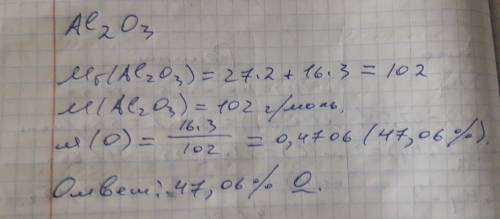 Al₂O₃
Mr(Al₂O₃) = 27·2 + 16·3 = 102
M(Al₂O₃) = 102 г/моль.
w(O) = 16·3/102 = 0,4706 (47,06%).
Ответ: 47,06% O.